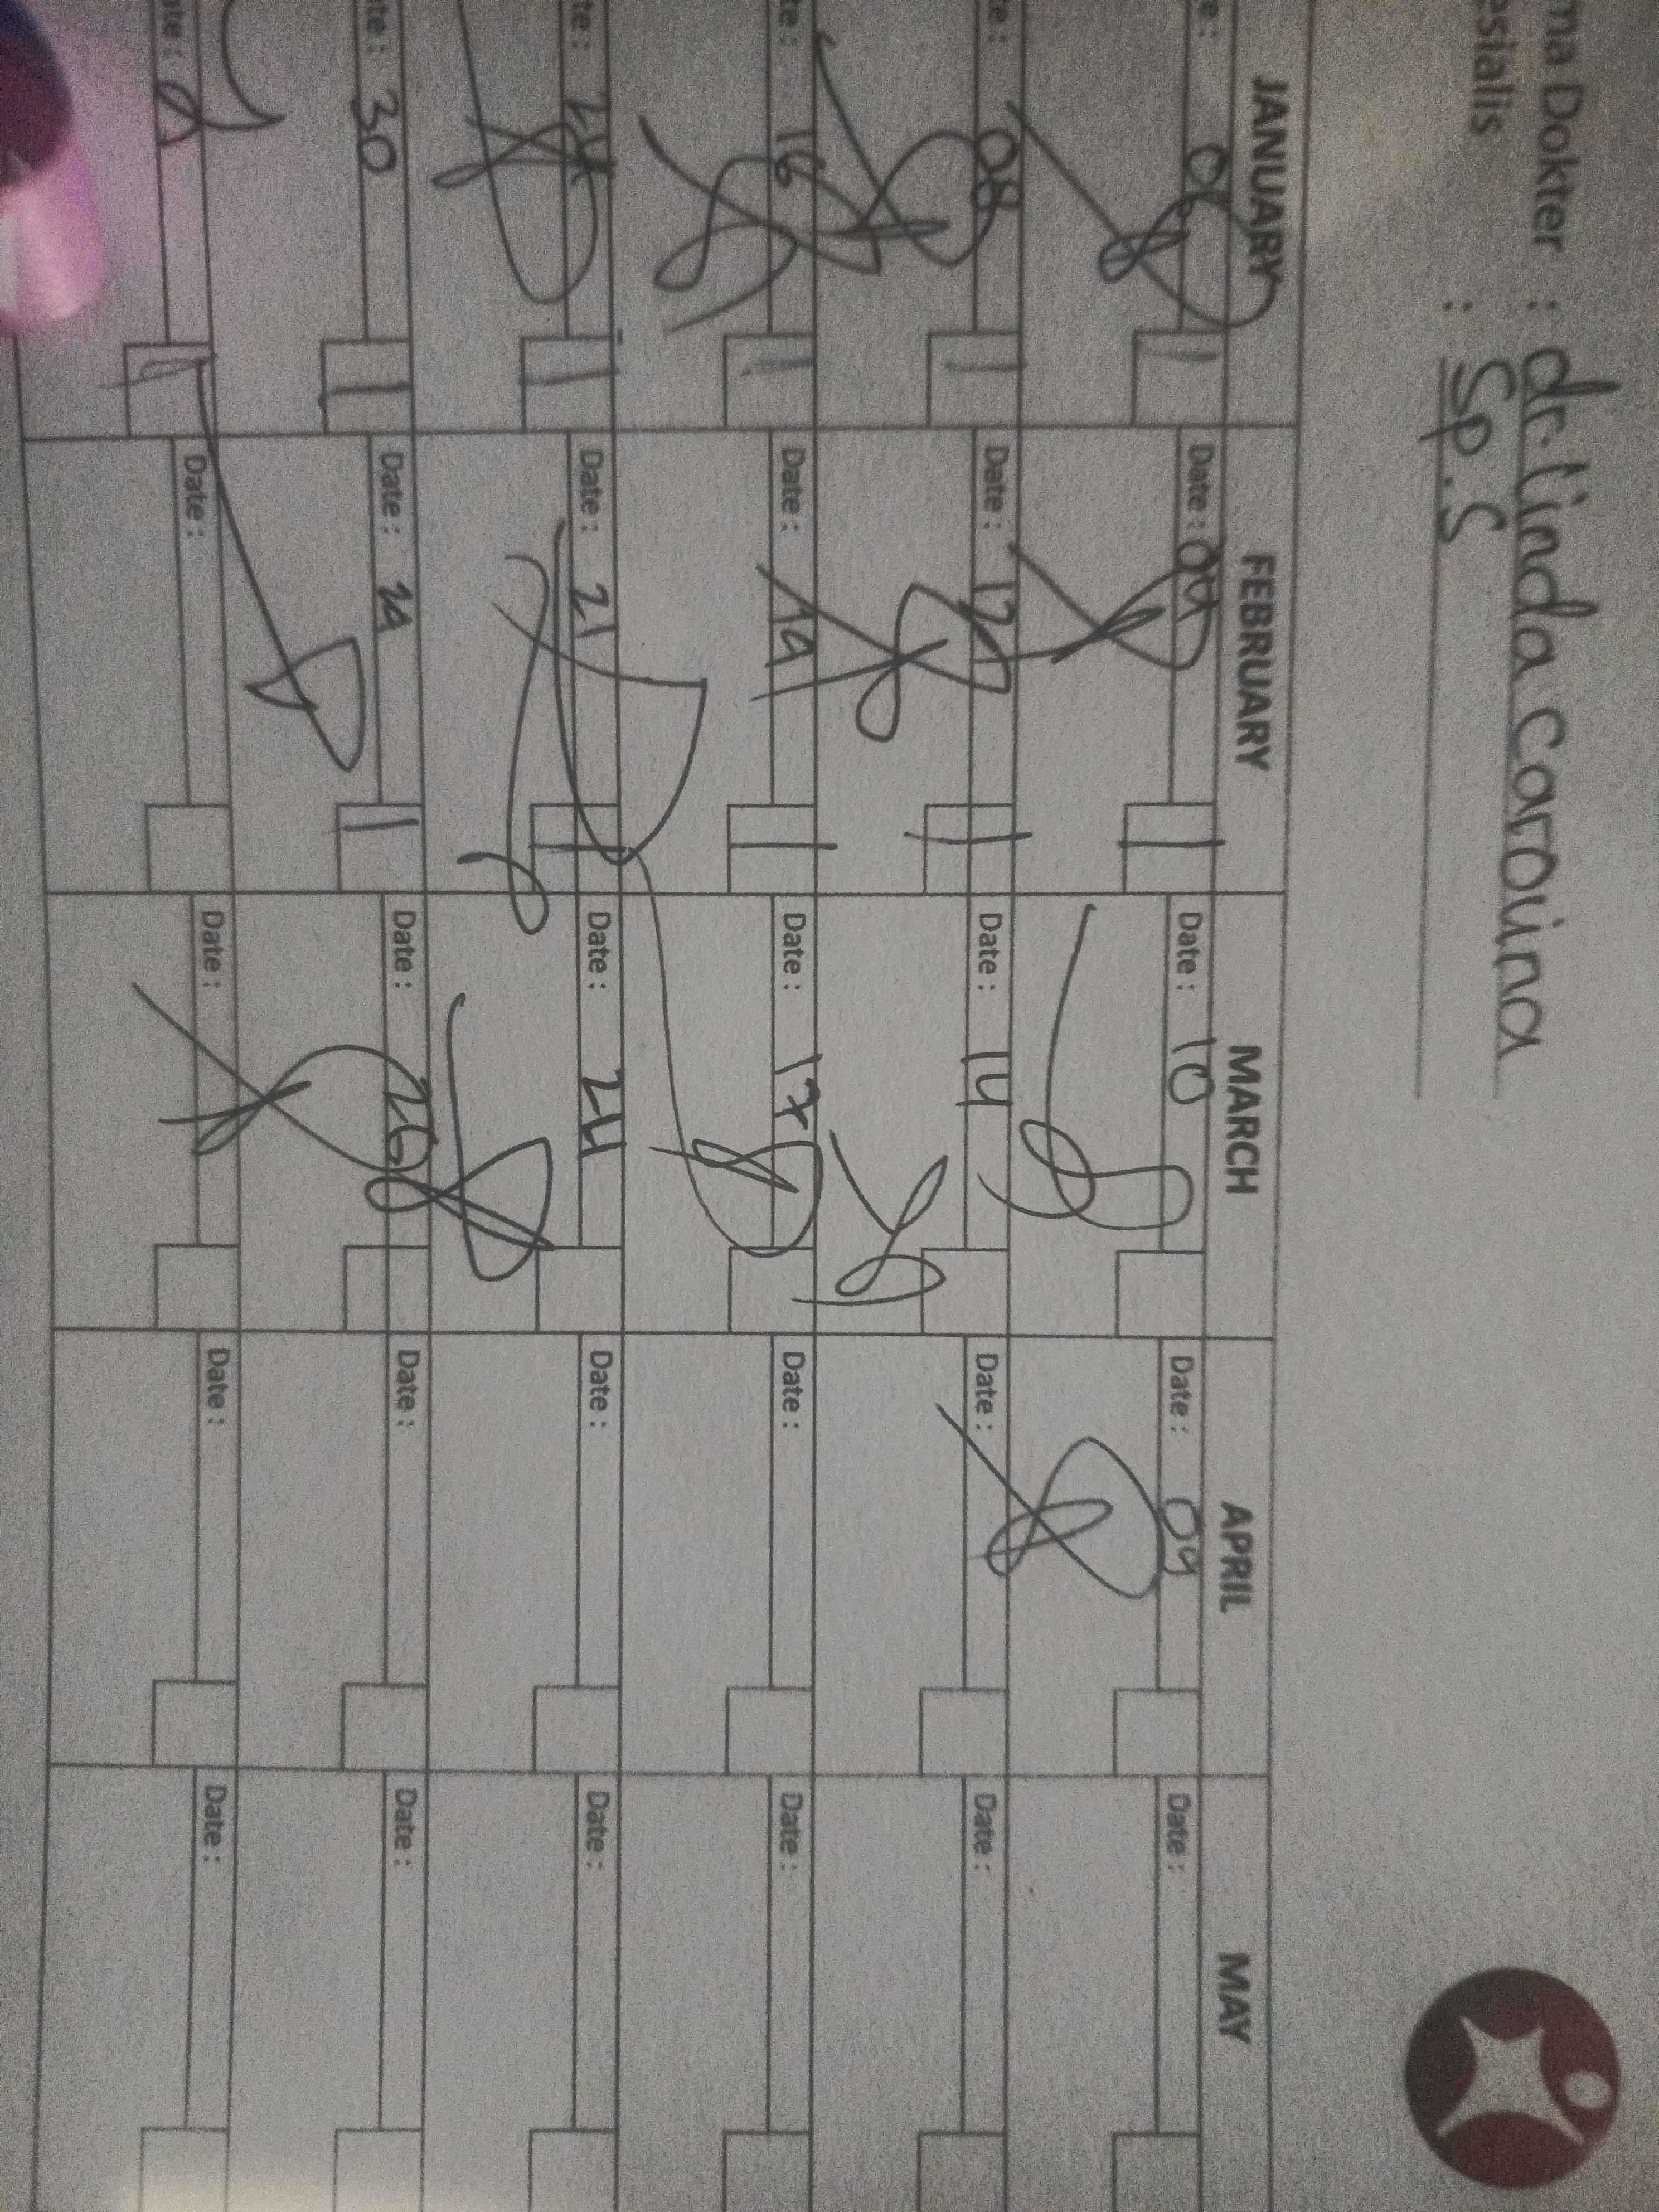 ma Dokter : dr. linda carolina
esialis : Sp. S
JANUARY FEBRUARY MARCH APRIL MAY
e: Date: Date: 10 Date: 09 Date:
te: 08 Date: 12 Date: 14 Date: Date:
te: 16 Date: 19 Date: 17 Date: Date:
te: Date: 21 Date: 24 Date: Date:
te: 30 Date: Date: 26 Date: Date:
ate: Date: Date: Date: Date: